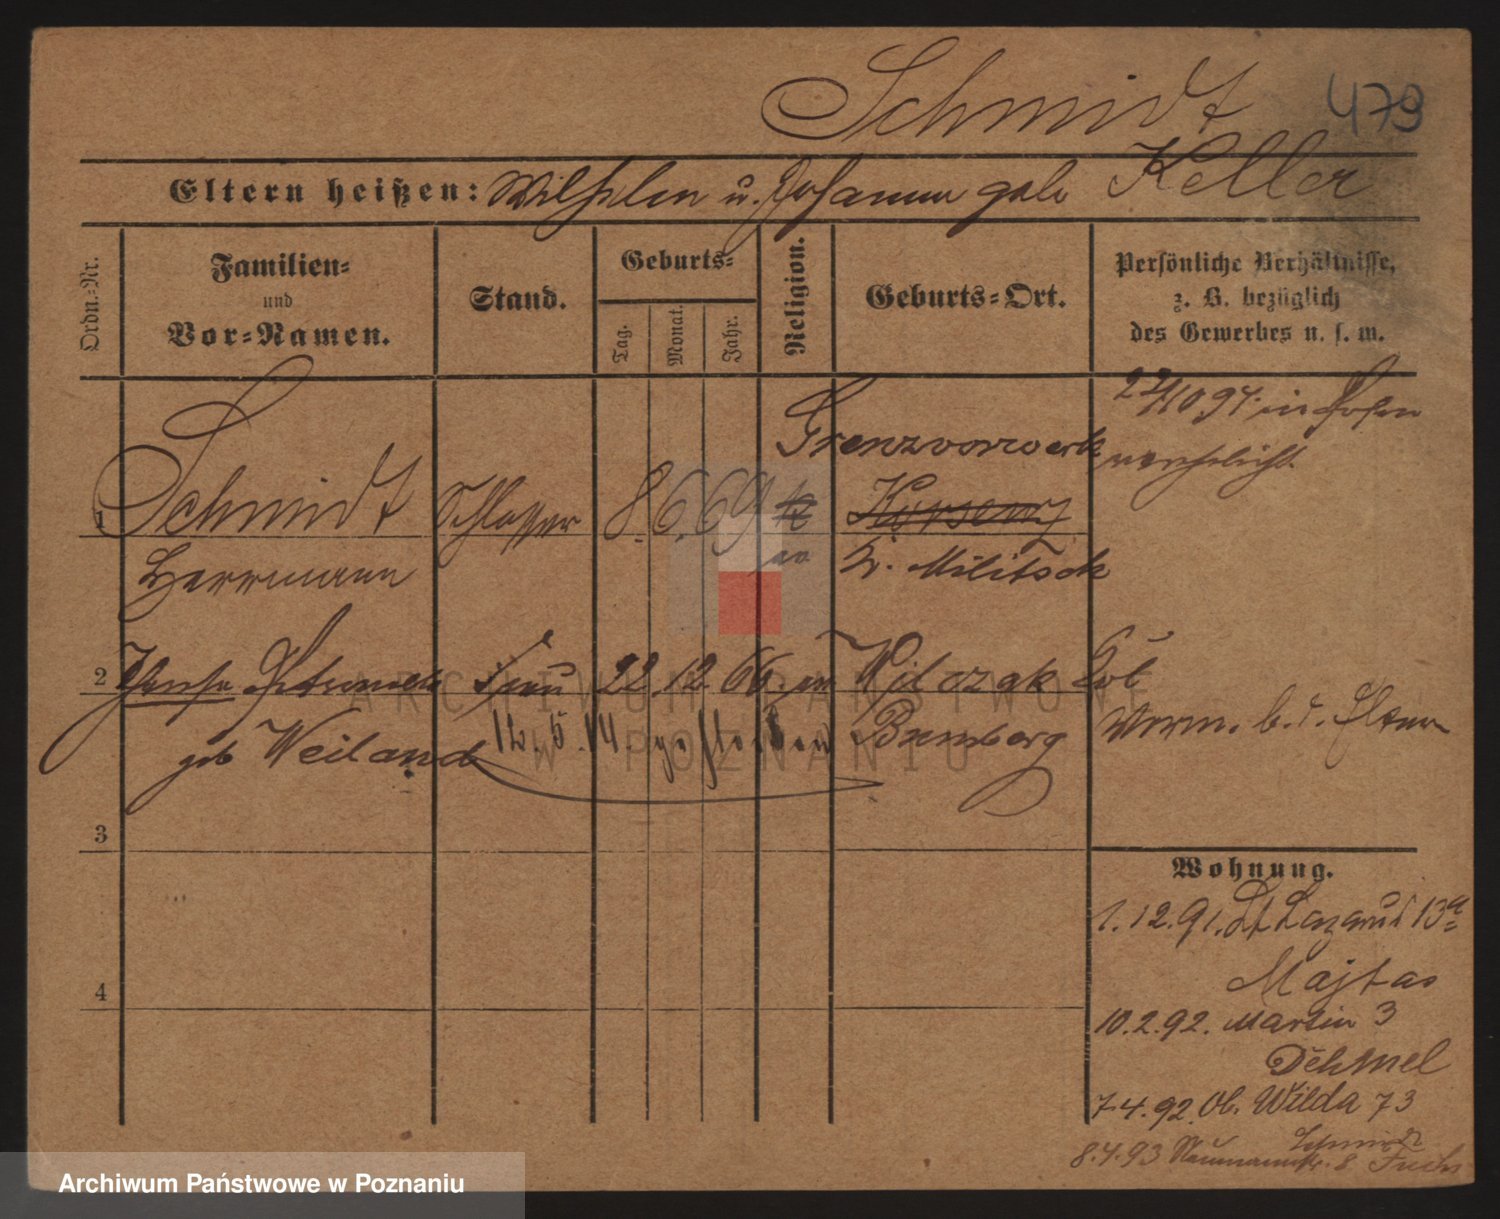 Schmidt 479
Eltern heißen: Wilhelm u. Johanna geb Keller
Ordn.-Nr.
Familien-
und
Vor-Namen.
Stand.
Geburts-
Tag.
Monat.
Jahr.
Religion.
Geburts-Ort.
Persönliche Verhältnisse,
z. B. bezüglich
des Gewerbes u. s. w.
1 Schmidt Schlosser 8. 6. 69 k Grenzvorwerk
Kursen
Herrmann ev Kr. Militsch
10 94 in Posen
verehelicht.
2 Frau 22. 12. 66. ev Wilczak
geb Weiland 12. 5. 14. gestorben Bromberg
Verm. b. d. Eltern
3
4
Wohnung.
1. 12. 91. St Lazarus 13a
Majtas
10. 2. 92. Martin 3
Dehmel
7. 4. 92. Ob. Wilda 73
Schmidt
8. 4. 93 Naumannstr. 8 Fuchs
ARCHIWUM PAŃSTWOWE
W POZNANIU
Archiwum Państwowe w Poznaniu